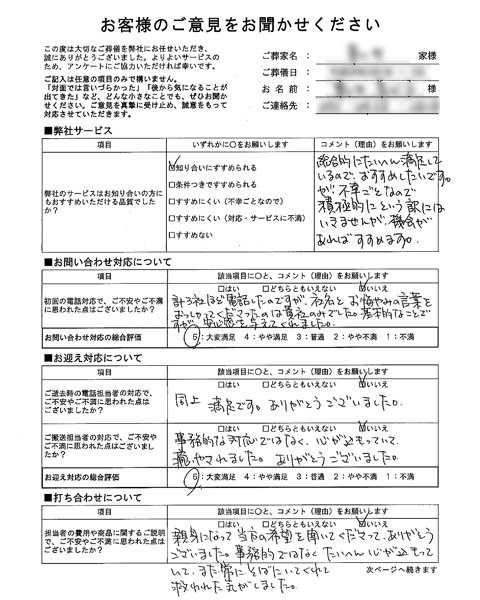 お客様のご意見をお聞かせください
この度は大切なご葬儀を弊社にお任せいただき、
誠にありがとうございました。よりよいサービスの
ため、アンケートにご協力いただければ幸いです。
ご記入は任意の項目のみで構いません。
「対面では言いづらかった」「後から気になることが
出てきた」など、どんな小さなことでも、ぜひお聞か
せください。ご意見を真摯に受け止め、誠意をもって
対応させていただきます。
ご葬家名： 家様
ご葬儀日：
お名前： 様
ご連絡先：
■弊社サービス
項目 いずれかに○をお願いします コメント（理由）をお願いします
弊社のサービスはお知り合いの方に
もおすすめいただける品質でした
か？
☑知り合いにすすめられる
□条件つきですすめられる
□すすめにくい（不幸ごとなので）
□すすめにくい（対応・サービスに不満）
□すすめない
総合的にたいへん満足して
いるので、おすすめしたいです。
が、不幸ごとなので
積極的にという訳には
いきませんが、機会が
あればすすめます。
■お問い合わせ対応について
項目 該当項目に○と、コメント（理由）をお願いします
初回の電話対応で、ご不安やご不満
に思われた点はございましたか？
□はい □どちらともいえない ☑いいえ
計3社ほど電話したのですが、社名とお悔やみの言葉を
おっしゃってくださったのは貴社のみでした。基本的なことで
すが、安心感を与えてくれました。
お問い合わせ対応の総合評価 5：大変満足 4：やや満足 3：普通 2：やや不満 1：不満
■お迎え対応について
項目 該当項目に○と、コメント（理由）をお願いします
ご逝去時の電話担当者の対応で、
ご不安やご不満に思われた点は
ございましたか？
□はい □どちらともいえない ☑いいえ
同上 満足です。ありがとうございました。
ご搬送担当者の対応で、ご不安や
ご不満に思われた点はございまし
たか？
□はい □どちらともいえない ☑いいえ
事務的な対応ではなく、心が込もっていて、
癒やされました。ありがとうございました。
お迎え対応の総合評価 5：大変満足 4：やや満足 3：普通 2：やや不満 1：不満
■打ち合わせについて
項目 該当項目に○と、コメント（理由）をお願いします
担当者の費用や商品に関するご説明
で、ご不安やご不満に思われた点は
ございましたか？
□はい □どちらともいえない ☑いいえ
親身になって当方の希望を聞いてくださって、ありがとう
ございました。事務的ではなくたいへん心が込もって
いて、また常にそばにいてくれて
救われた気がしました。
次ページへ続きます